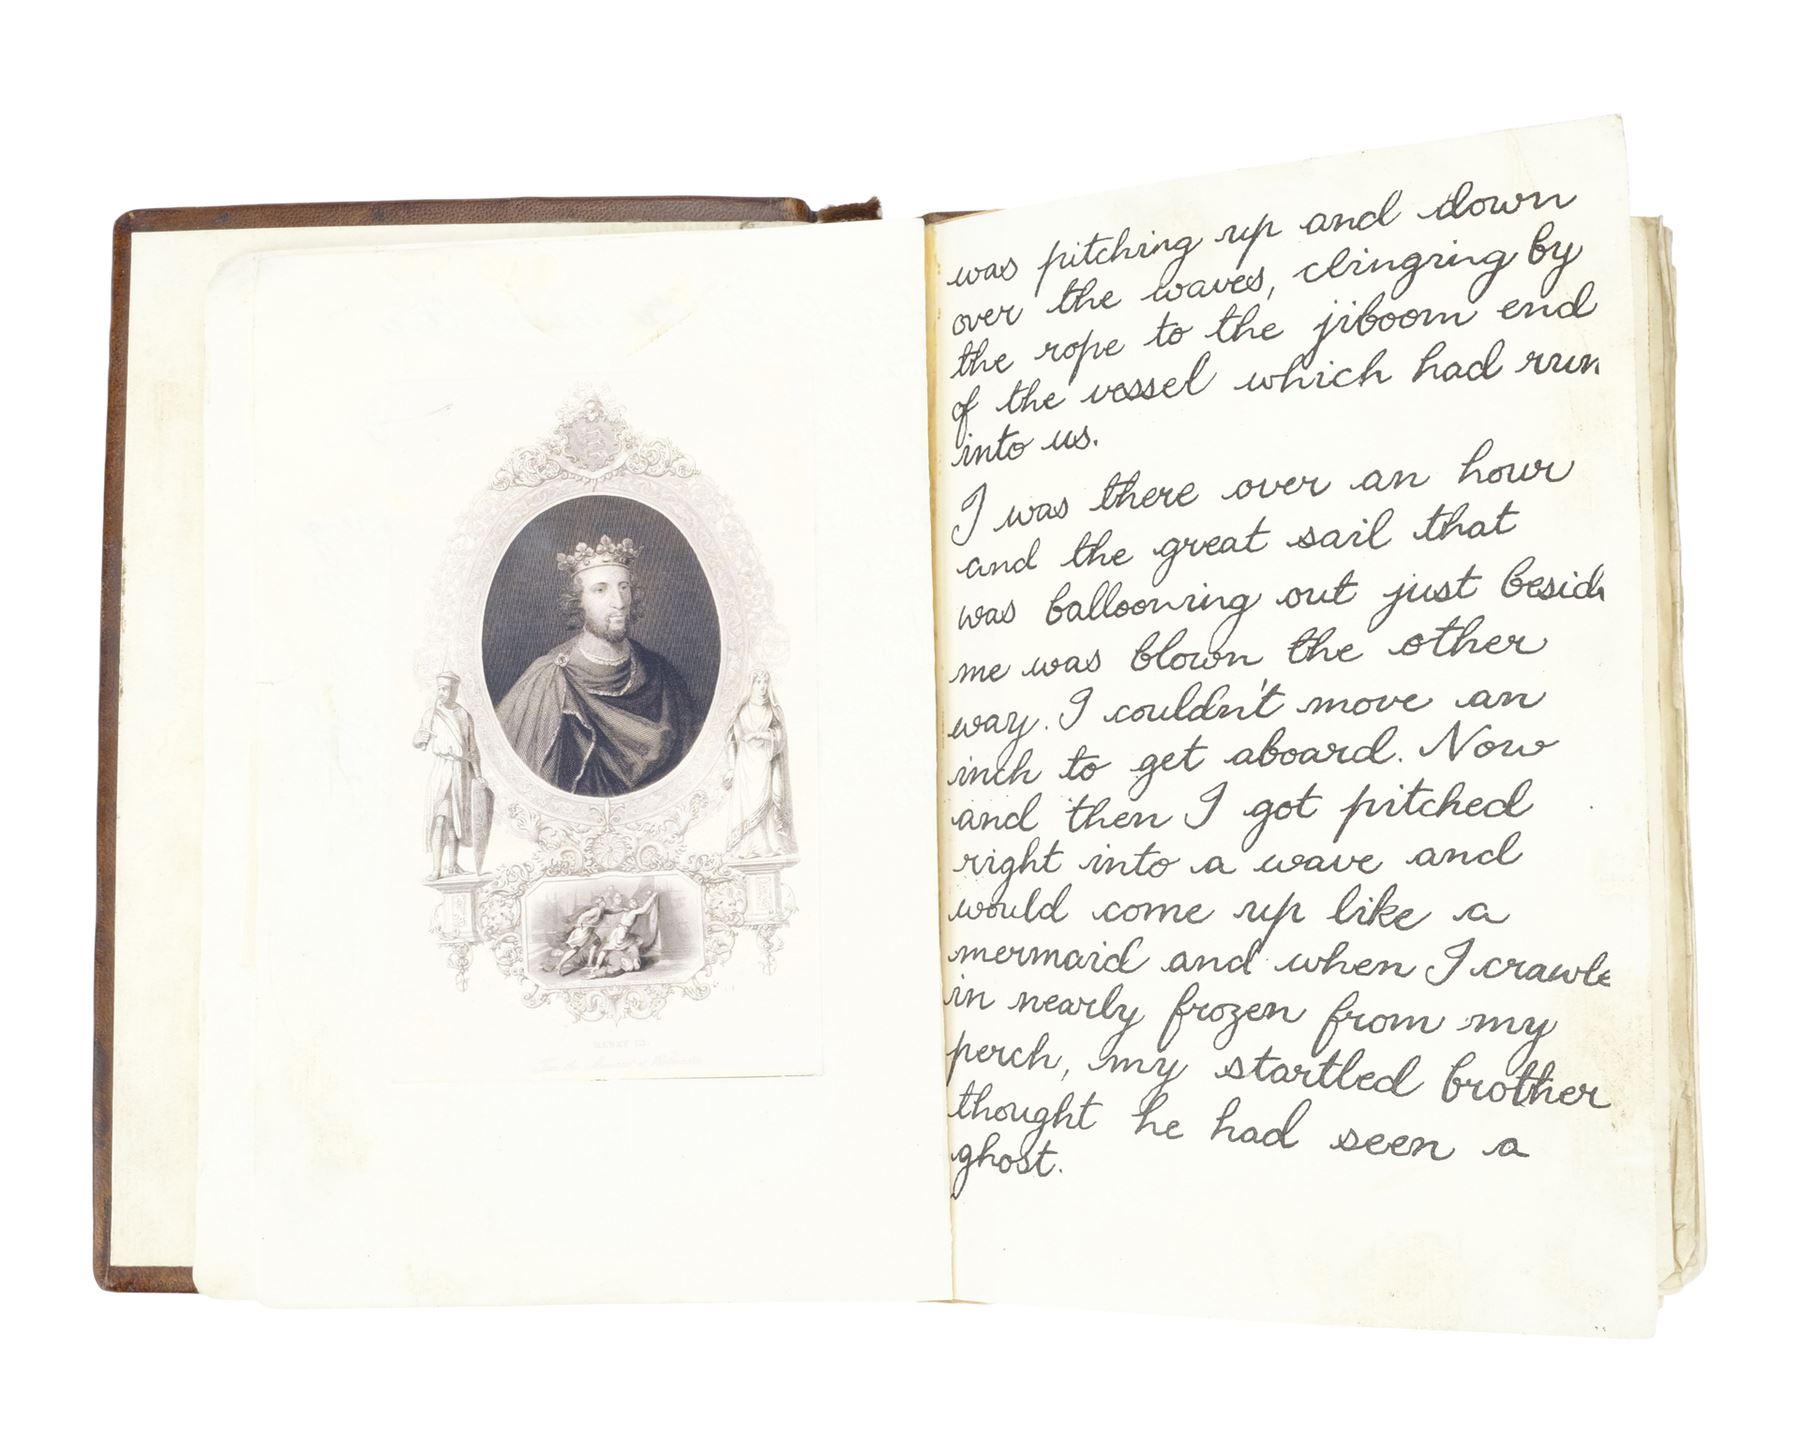 HENRY III.
was pitching up and down
over the waves, clinging by
the rope to the jiboom end
of the vessel which had run
into us.
I was there over an hour
and the great sail that
was ballooning out just besid
me was blown the other
way. I couldn't move an
inch to get aboard. Now
and then I got pitched
right into a wave and
would come up like a
mermaid and when I crawle
in nearly frozen from my
perch, my startled brother
thought he had seen a
ghost.